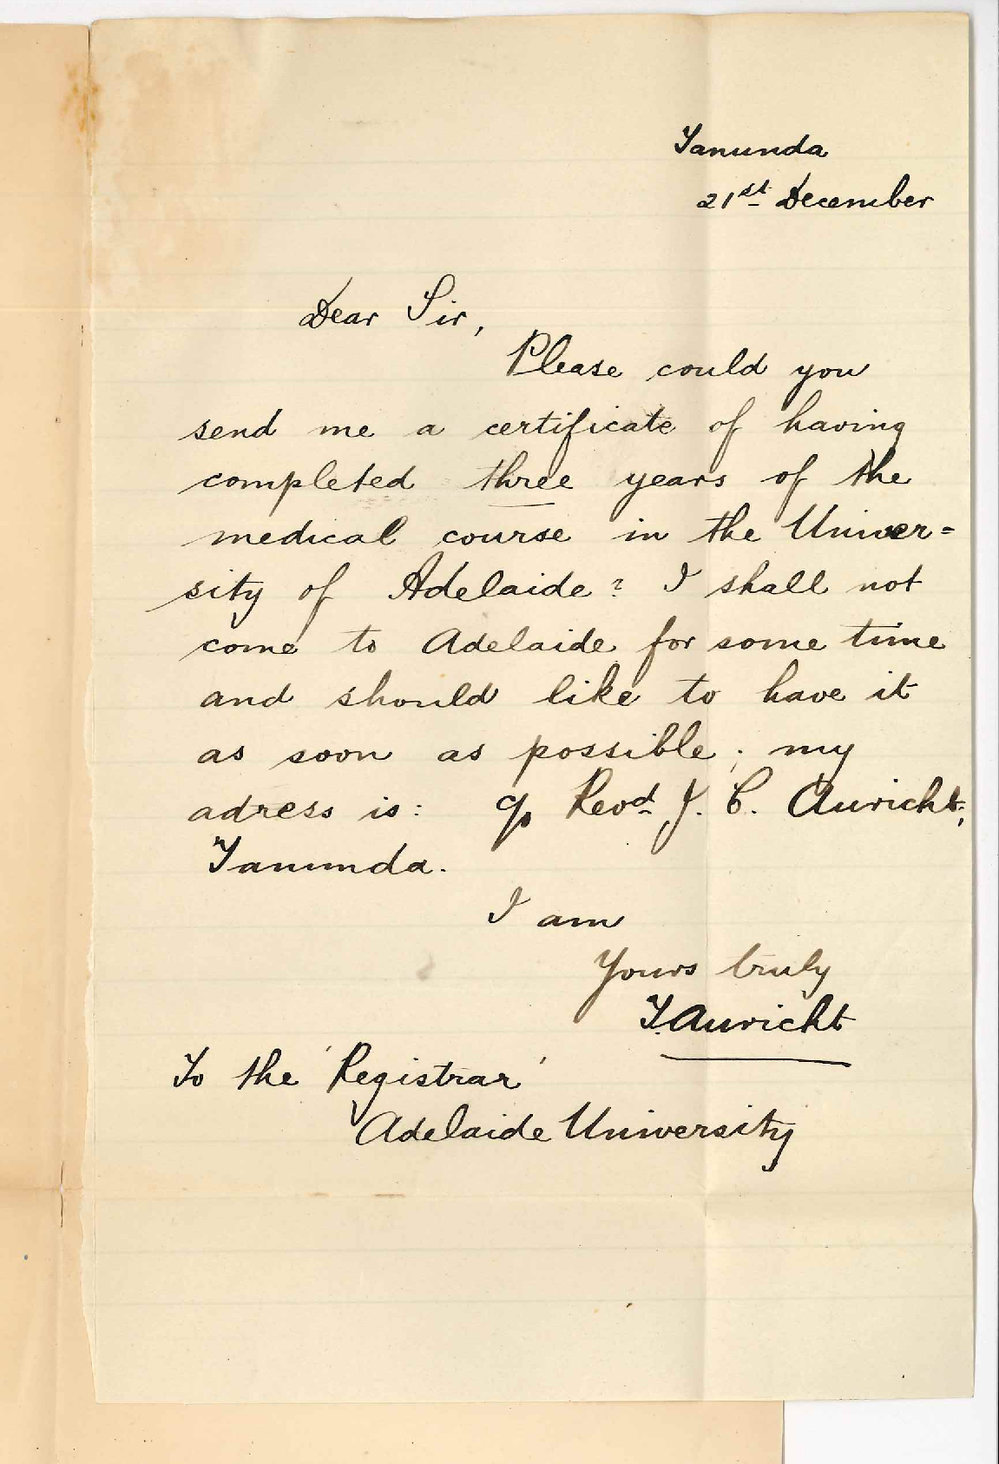 Tanunda
21st December
Dear Sir,
Please could you
send me a certificate of having
completed three years of the
medical course in the Univer=
sity of Adelaide? I shall not
come to Adelaide for some time
and should like to have it
as soon as possible; my
adress is: c/o Revd. J. C. Auricht,
Tanunda.
I am
Yours truly
T. Auricht
To the 'Registrar'
Adelaide University